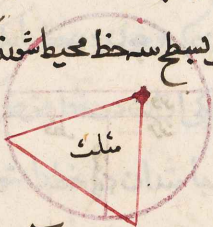 بسطح سه خط محیط شوند
مثلث